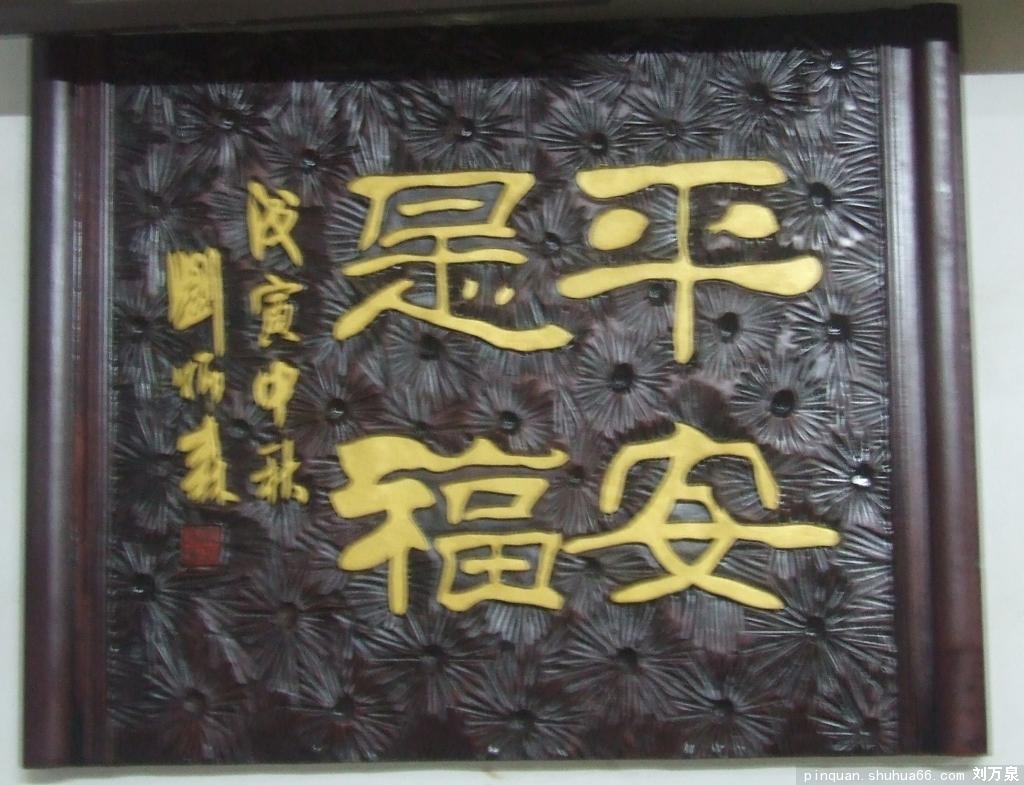 平安
是福
戊寅中秋
劉炳森
pinquan.shuhua66.com 刘万泉